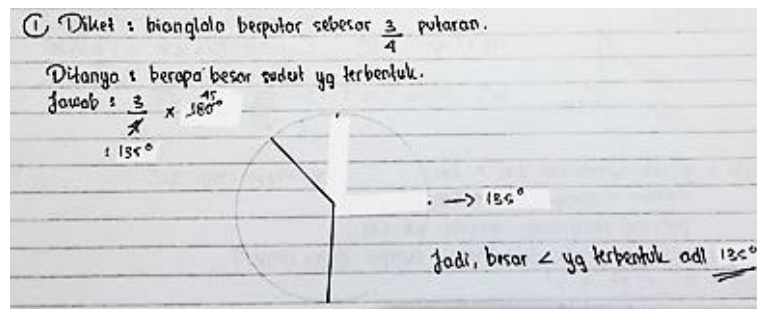 ① Diket : bianglala berputar sebesar 3/4 putaran.
Ditanya : berapa besar sudut yg terbentuk.
Jawab : 3/4 × 180° 45
: 135°
→ 135°
Jadi, besar ∠ yg terbentuk adl 135°